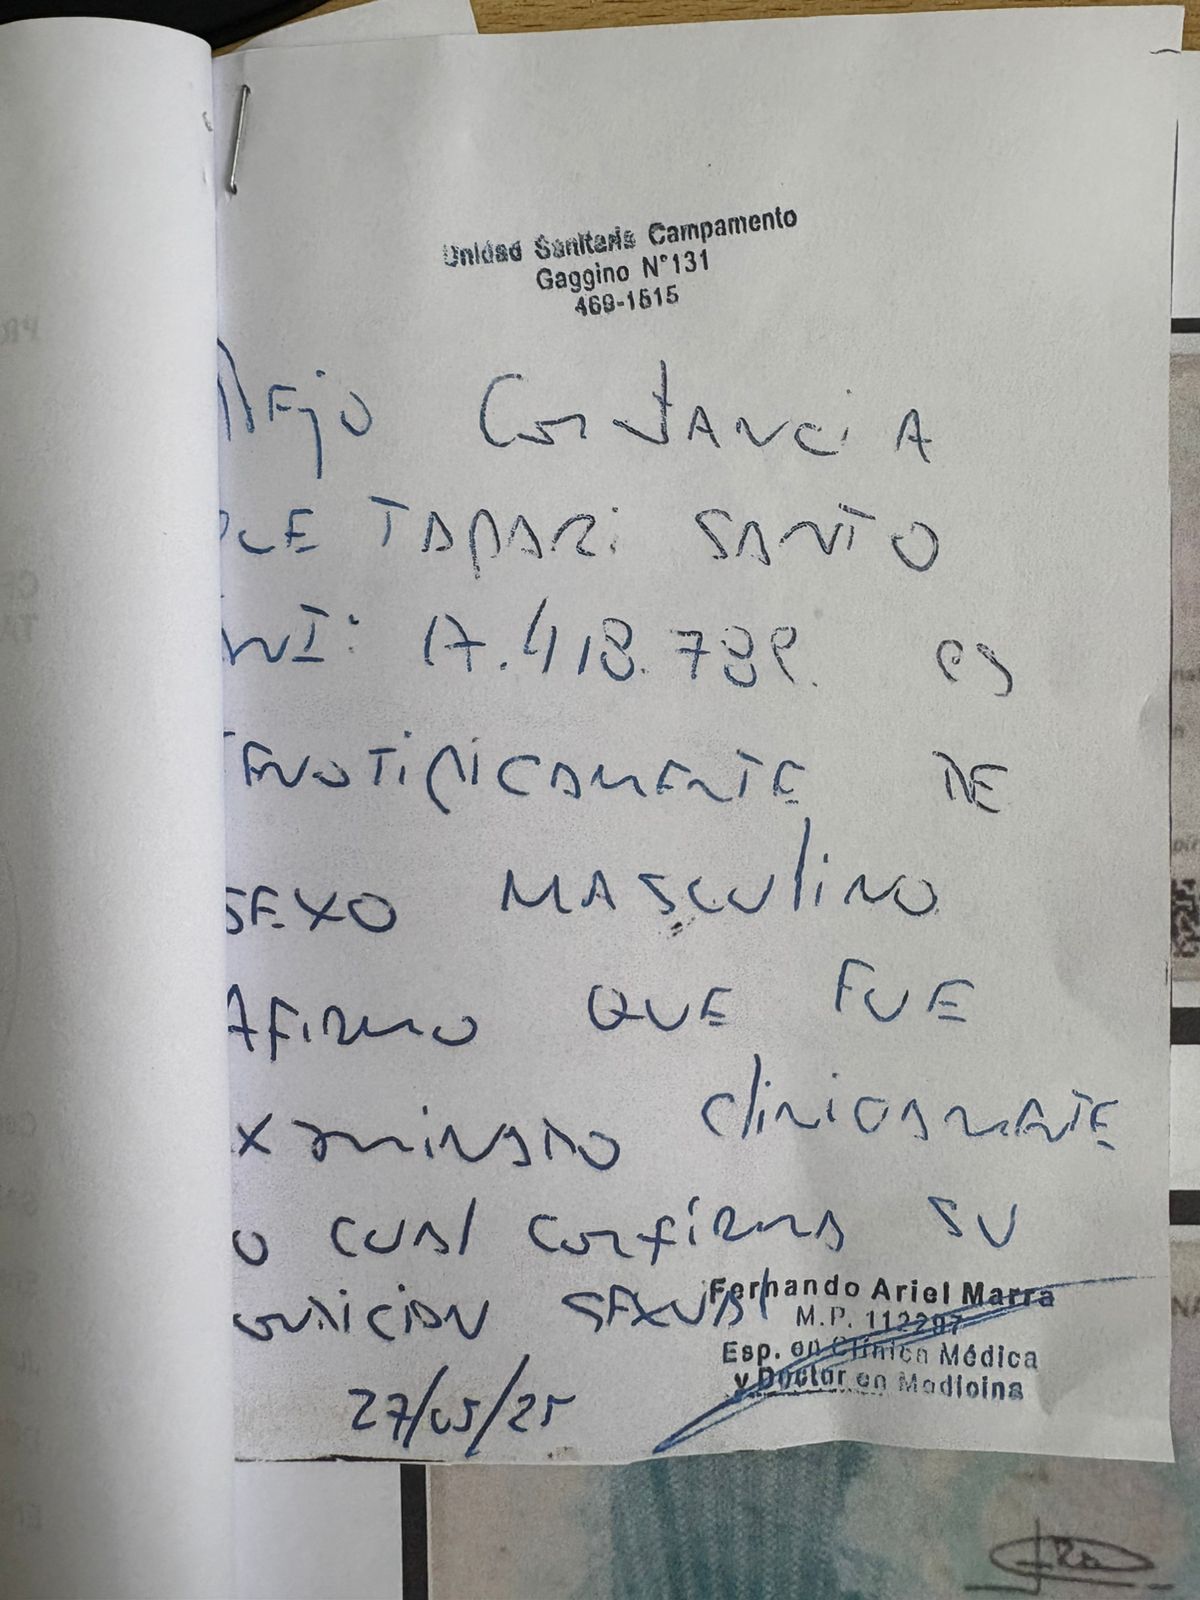 Unidad Sanitaria Campamento
Gaggino N°131
469-1515
Dejo Constancia
que TAPARi SANTO
DNI: 17.418.789. es
FENOTIPICAMENTE DE
SEXO MASCULINO
AFIRMO QUE FUE
EXAMINADO CLINICAMENTE
LO CUAL CONFIRMA SU
CONDICION SEXUAL
Fernando Ariel Marra
M.P. 112297
Esp. en Clínica Médica
y Doctor en Medicina
27/05/25